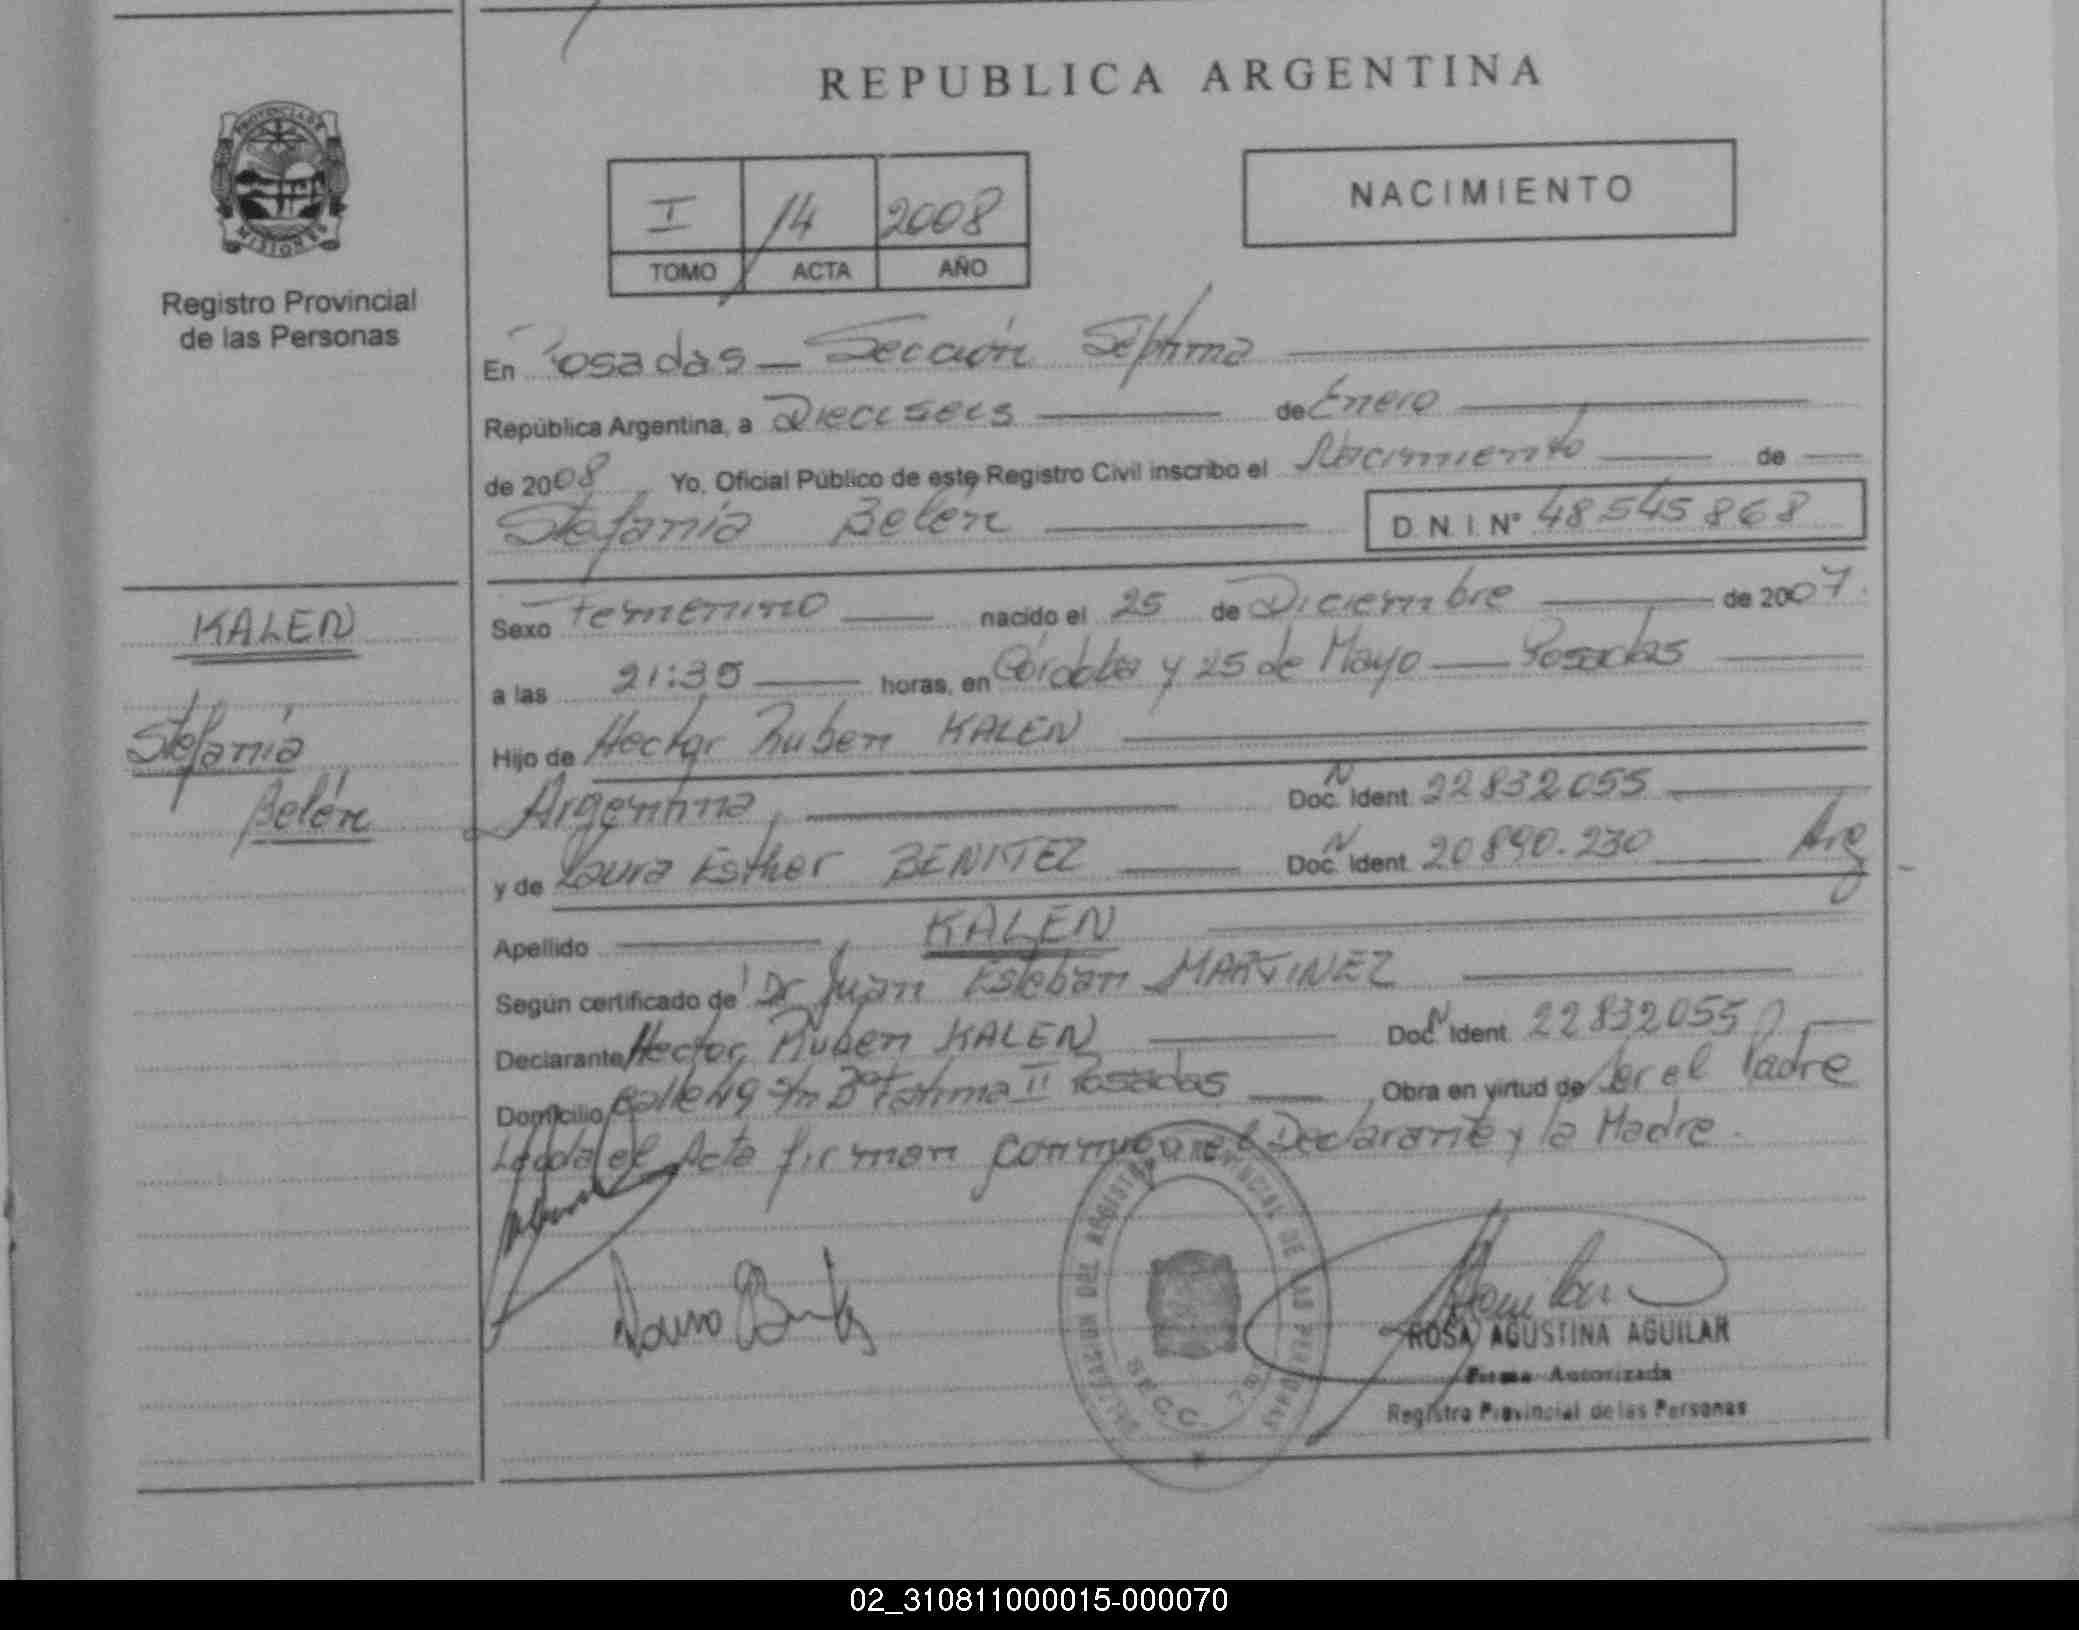 REPUBLICA ARGENTINA
PROVINCIA DE
MISIONES
Registro Provincial
de las Personas
I 14 2008
TOMO ACTA AÑO
NACIMIENTO
En Posadas - Sección Séptima
República Argentina, a Dieciseis de Enero
de 2008 Yo, Oficial Público de este Registro Civil inscribo el Nacimiento de
Stefanía Belén D.N.I. N° 48545868
KALEN
Stefanía
Belén
Sexo Femenino nacido el 25 de Diciembre de 2007.
a las 21:35 horas, en Córdoba y 25 de Mayo - Posadas
Hijo de Hector Ruben KALEN
Argentina Doc. N Ident. 22832055
y de Laura Esther BENITEZ Doc. N Ident. 20890.230 Arg
Apellido KALEN
Según certificado de Dr Juan Esteban MARTINEZ
Declarante Hector Ruben KALEN Doc. N Ident. 22832055
Domicilio Calle 49 s/n B° Fatima II Posadas Obra en virtud de Ser el Padre
Leida el Acta firman conmigo el Declarante y la Madre.
Laura
ROSA AGUSTINA AGUILAR
Firma Autorizada
Registro Provincial de las Personas
DELEGACION DEL REGISTRO PROVINCIAL DE LAS PERSONAS
SECC. 7
02_310811000015-000070